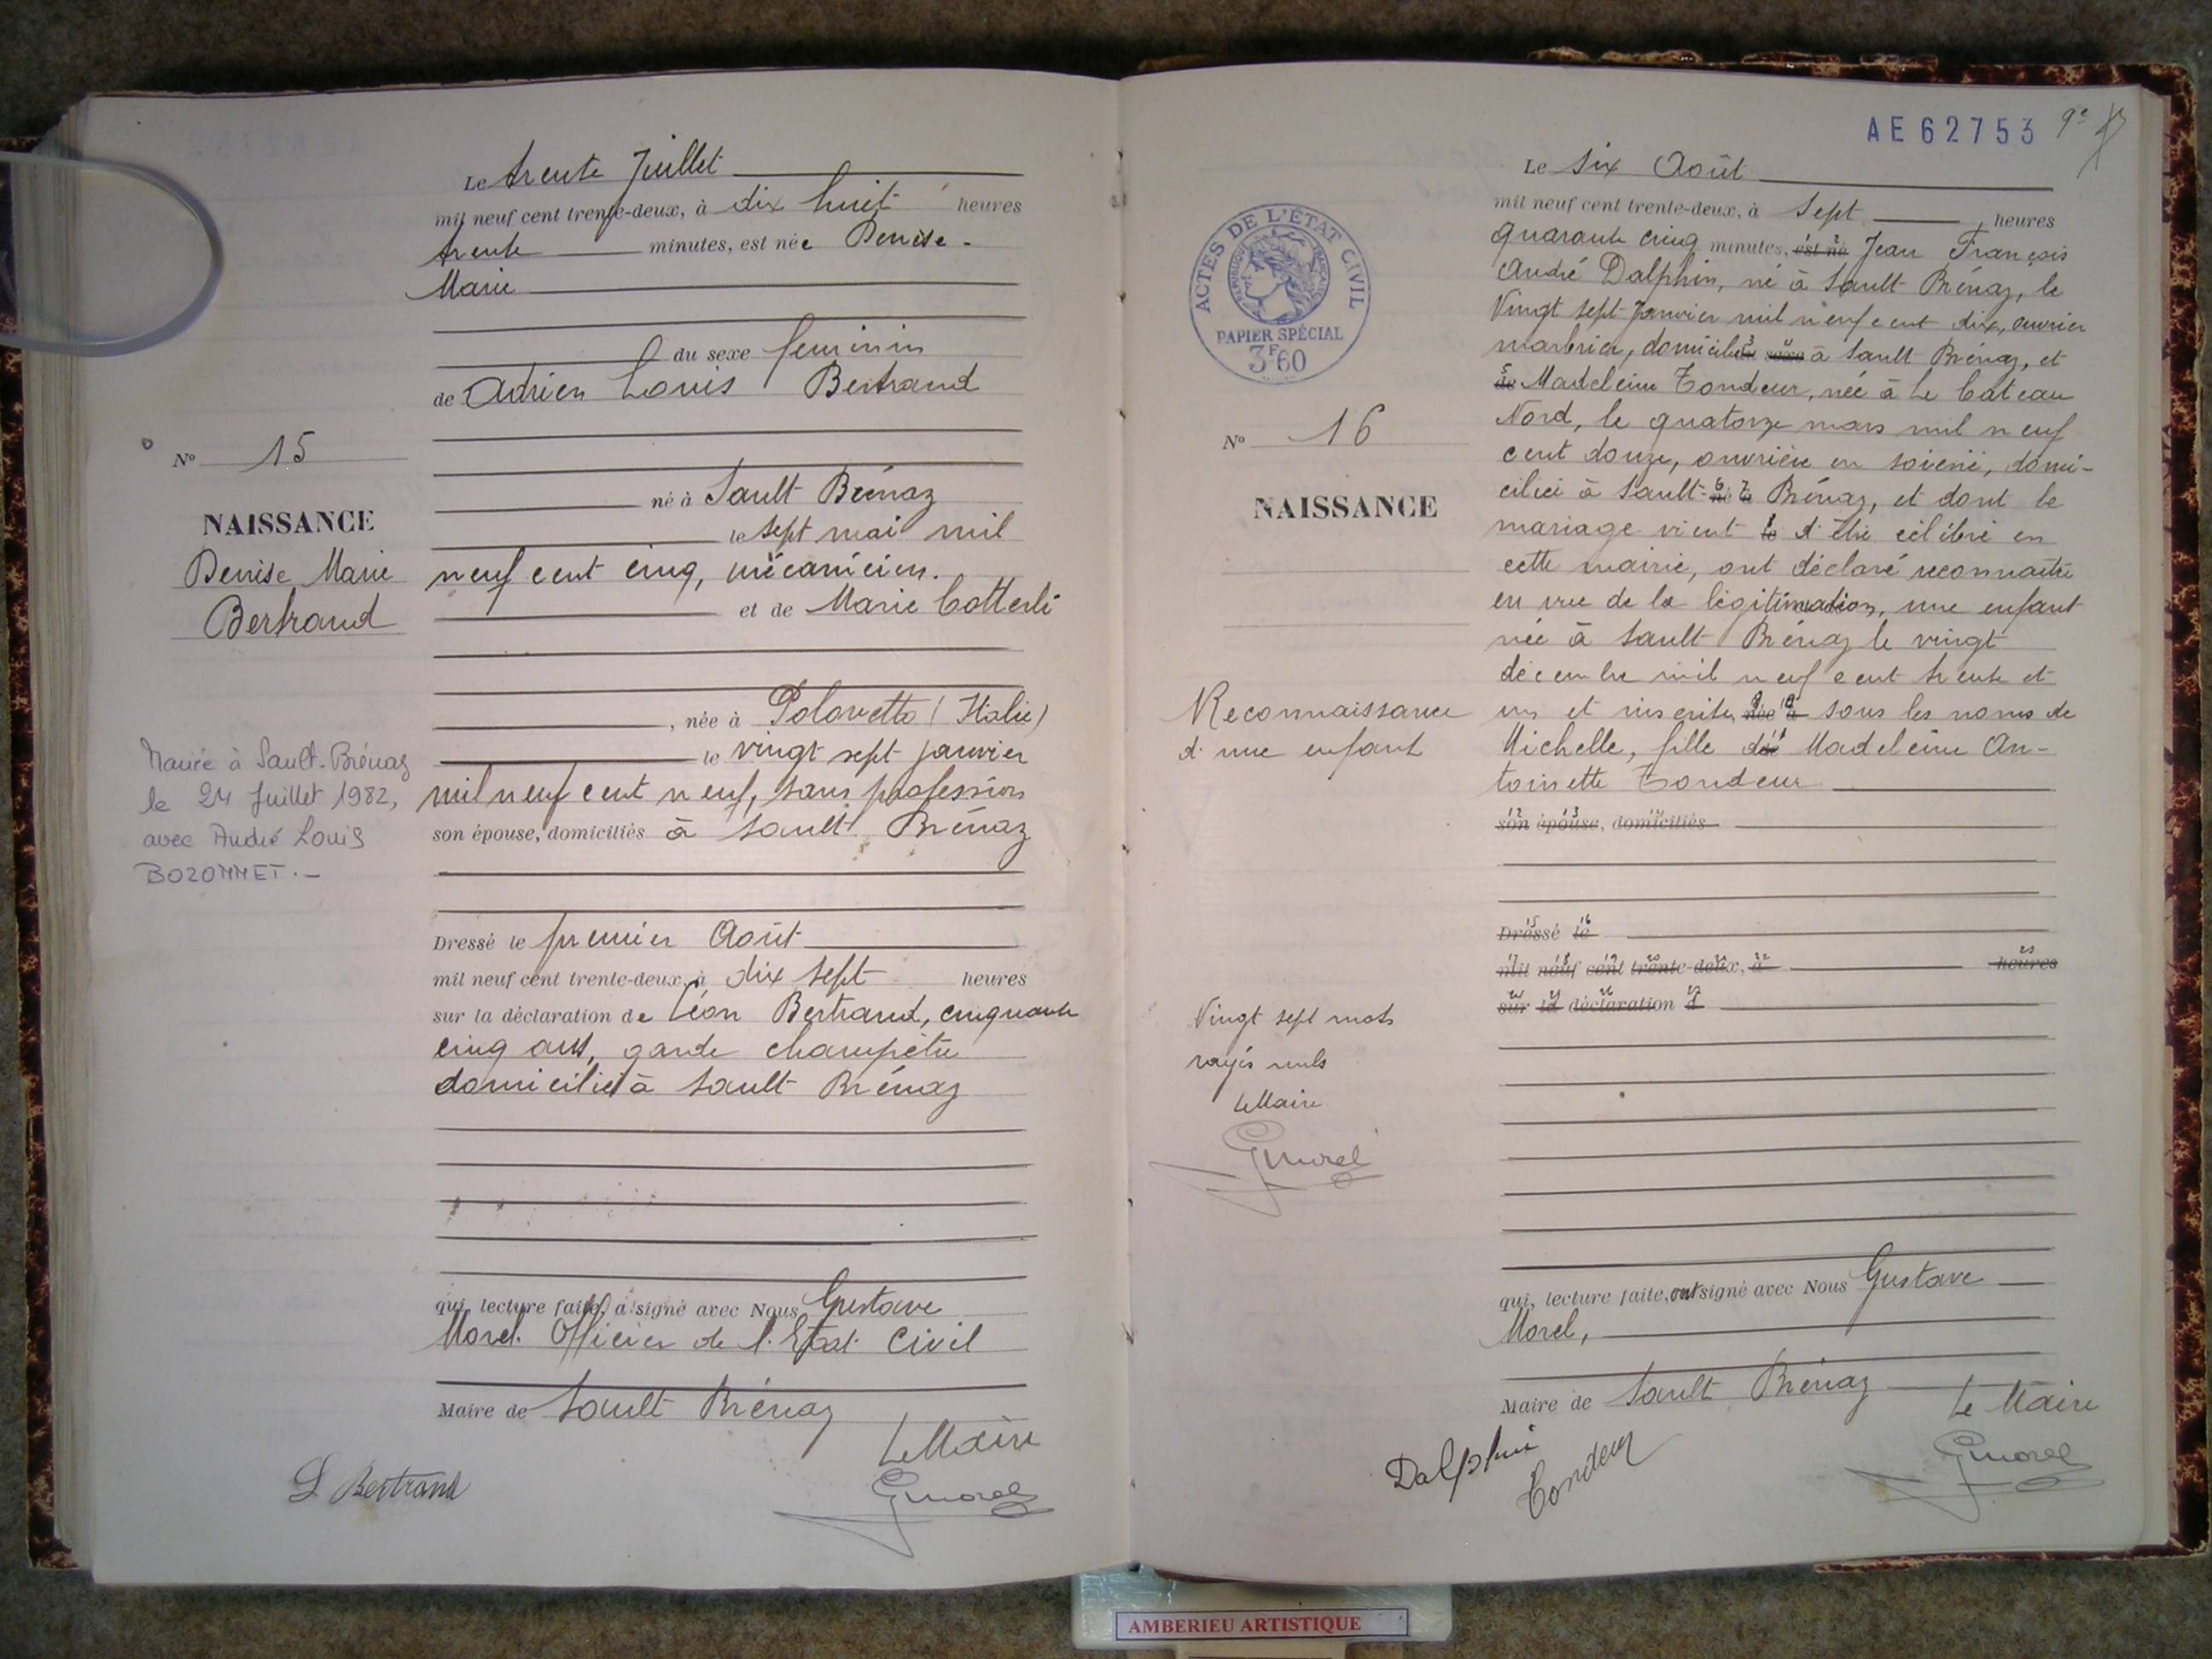 Le trente Juillet
mil neuf cent trente-deux, à dix huit heures
trente minutes, est née Denise-
Marie
du sexe féminin
de Adrien Louis Bertrand
né à Sault Brénaz
le sept mai mil
neuf cent cinq, mécanicien.
et de Marie
, née à (Italie)
le vingt sept janvier
mil neuf cent neuf, sans profession
son épouse, domiciliés à Sault Brénaz
Dressé le premier Août
mil neuf cent trente-deux, à dix sept heures
sur la déclaration de Léon Bertrand, cinquante
cinq ans, garde champêtre
domicilié à Sault Brénaz
qui, lecture faite, a signé avec Nous Gustave
Morel Officier de l'Etat Civil
Maire de Sault Brénaz
Le Maire
L Bertrand
GMorel
N° 15
NAISSANCE
Denise Marie
Bertrand
Mariée à Sault-Brénaz
le 24 Juillet 1982,
avec André Louis
BOZONNET.-
AE62753 9e
Le Six Août
mil neuf cent trente-deux, à Sept heures
quarante cinq minutes, est né Jean François
André Dalphin, né à Sault Brénaz, le
Vingt sept Janvier mil neuf cent dix, ouvrier
marbrier, domicilié du sexe à Sault Brénaz, et
de Madeleine Tondeur, née à Le Cateau
Nord, le quatorze mars mil neuf
cent douze, ouvrière en soierie, domi-
ciliée à Sault-né à Brénaz, et dont le
mariage vient le d'être célébré en
cette mairie, ont déclaré reconnaître
en vue de la légitimation, une enfant
née à Sault Brénaz le vingt
décembre mil neuf cent trente et
un et inscrite, née à sous les noms de
Michelle, fille de Madeleine An-
toinette Tondeur
son épouse, domiciliés
Dressé le
mil neuf cent trente-deux, à heures
sur la déclaration d
qui, lecture faite, ont signé avec Nous Gustave
Morel,
Maire de Sault Brénaz
Le Maire
Dalphin
Tondeur
GMorel
ACTES DE L'ÉTAT CIVIL
RÉPUBLIQUE FRANÇAISE
PAPIER SPÉCIAL
3F60
N° 16
NAISSANCE
Reconnaissance
d'une enfant
Vingt sept mots
rayés nuls
Le Maire
GMorel
AMBERIEU ARTISTIQUE